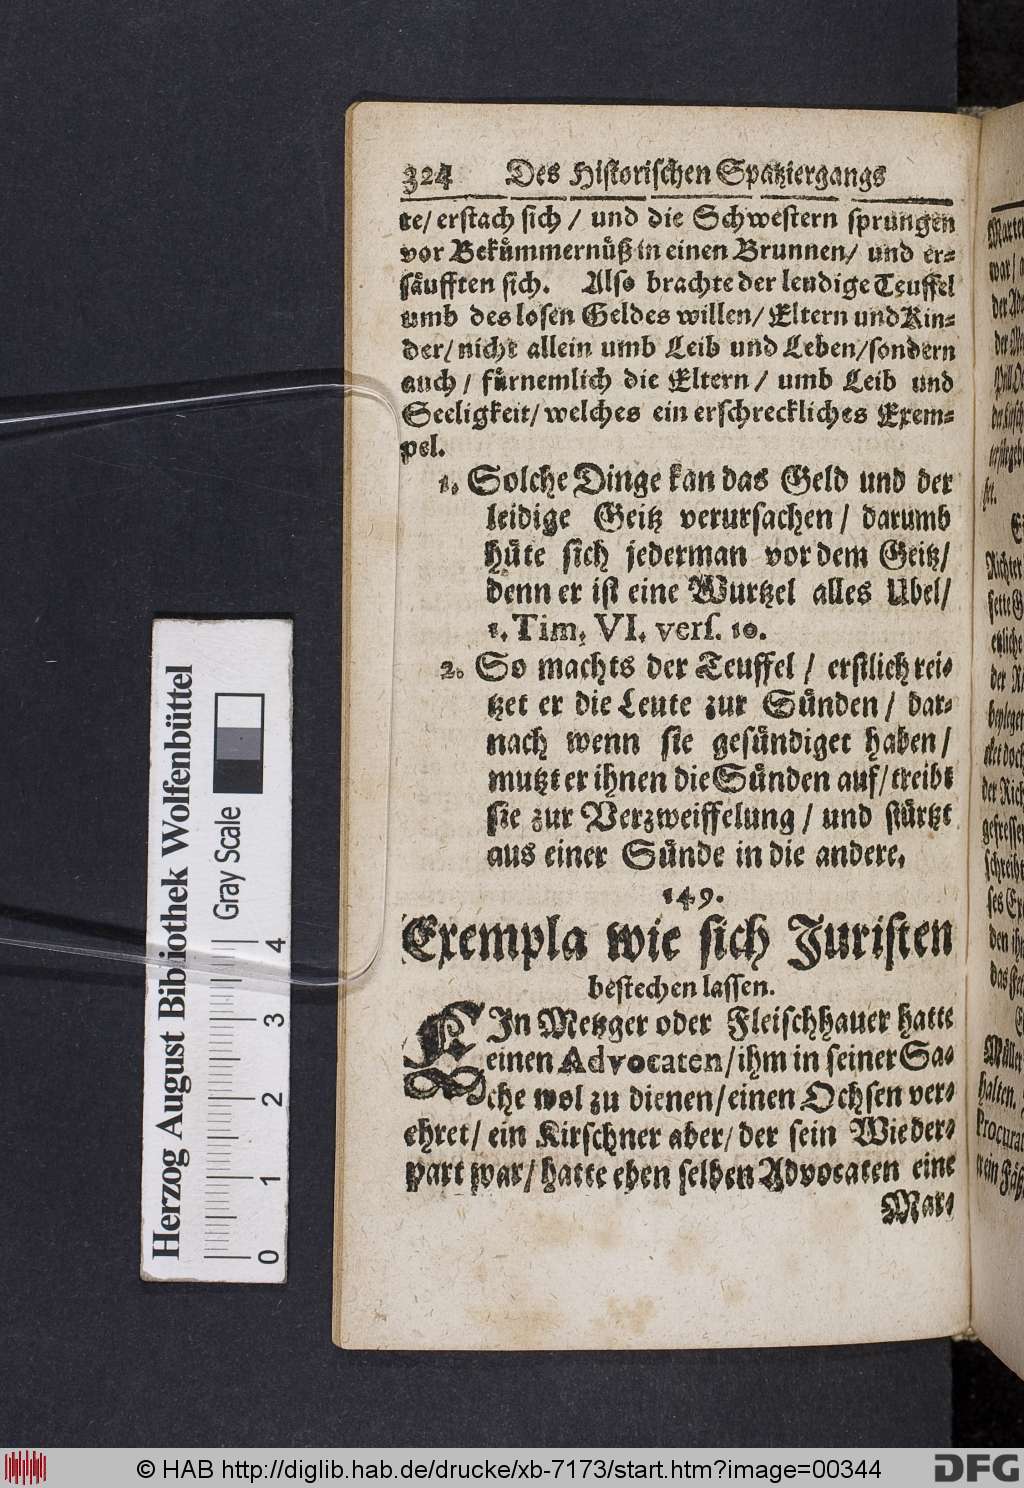 324 Des Historischen Spatziergangs
te/ erstach sich / und die Schwestern sprungen
vor Bekümmernüß in einen Brunnen/ und er-
säufften sich. Also brachte der leudige Teuffel
umb des losen Geldes willen/ Eltern und Kin-
der/ nicht allein umb Leib und Leben/sondern
auch / fürnemlich die Eltern / umb Leib und
Seeligkeit/ welches ein erschreckliches Exem-
pel.
1. Solche Dinge kan das Geld und der
leidige Geitz verursachen / darumb
hüte sich jederman vor dem Geitz/
denn er ist eine Wurtzel alles Ubel/
1. Tim. VI. vers. 10.
2. So machts der Teuffel / erstlich rei-
tzet er die Leute zur Sünden / dar-
nach wenn sie gesündiget haben /
mutzt er ihnen die Sünden auf/ treibt
sie zur Verzweiffelung / und stürtzt
aus einer Sünde in die andere.
149.
Exempla wie sich Juristen
bestechen lassen.
EIn Metzger oder Fleischhauer hatte
einen Advocaten/ihm in seiner Sa-
che wol zu dienen/einen Ochsen ver-
ehret/ ein Kirschner aber/ der sein Wieder-
part war/ hatte eben selben Advocaten eine
Mar-
Herzog August Bibliothek Wolfenbüttel
Gray Scale
0 1 2 3 4
© HAB http://diglib.hab.de/drucke/xb-7173/start.htm?image=00344
DFG